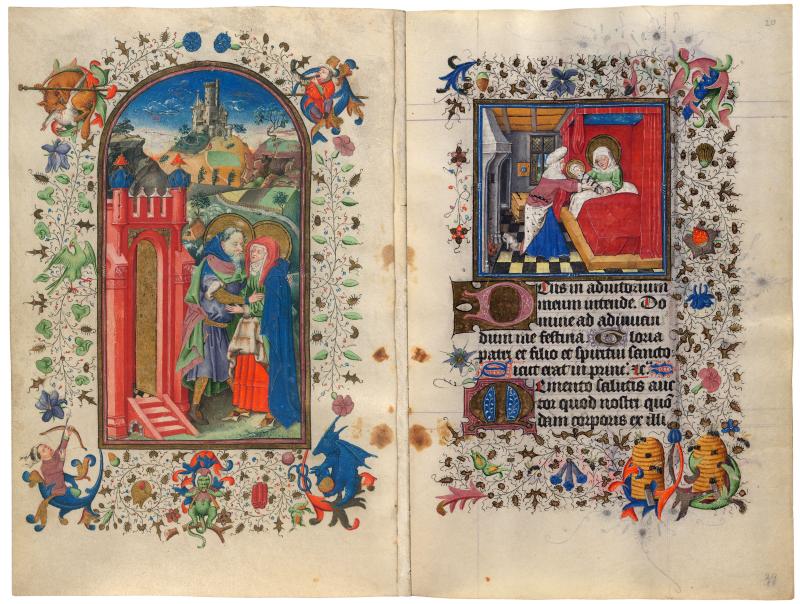 20
Deus in adiutorium
meum intende. Do
mine ad adiuuan
dum me festina Gloria
patri et filio et spiritui sancto
Sicut erat in princ. ⁊c.
Memento salutis auc
tor quod nostri quō
dam corporis ex illi